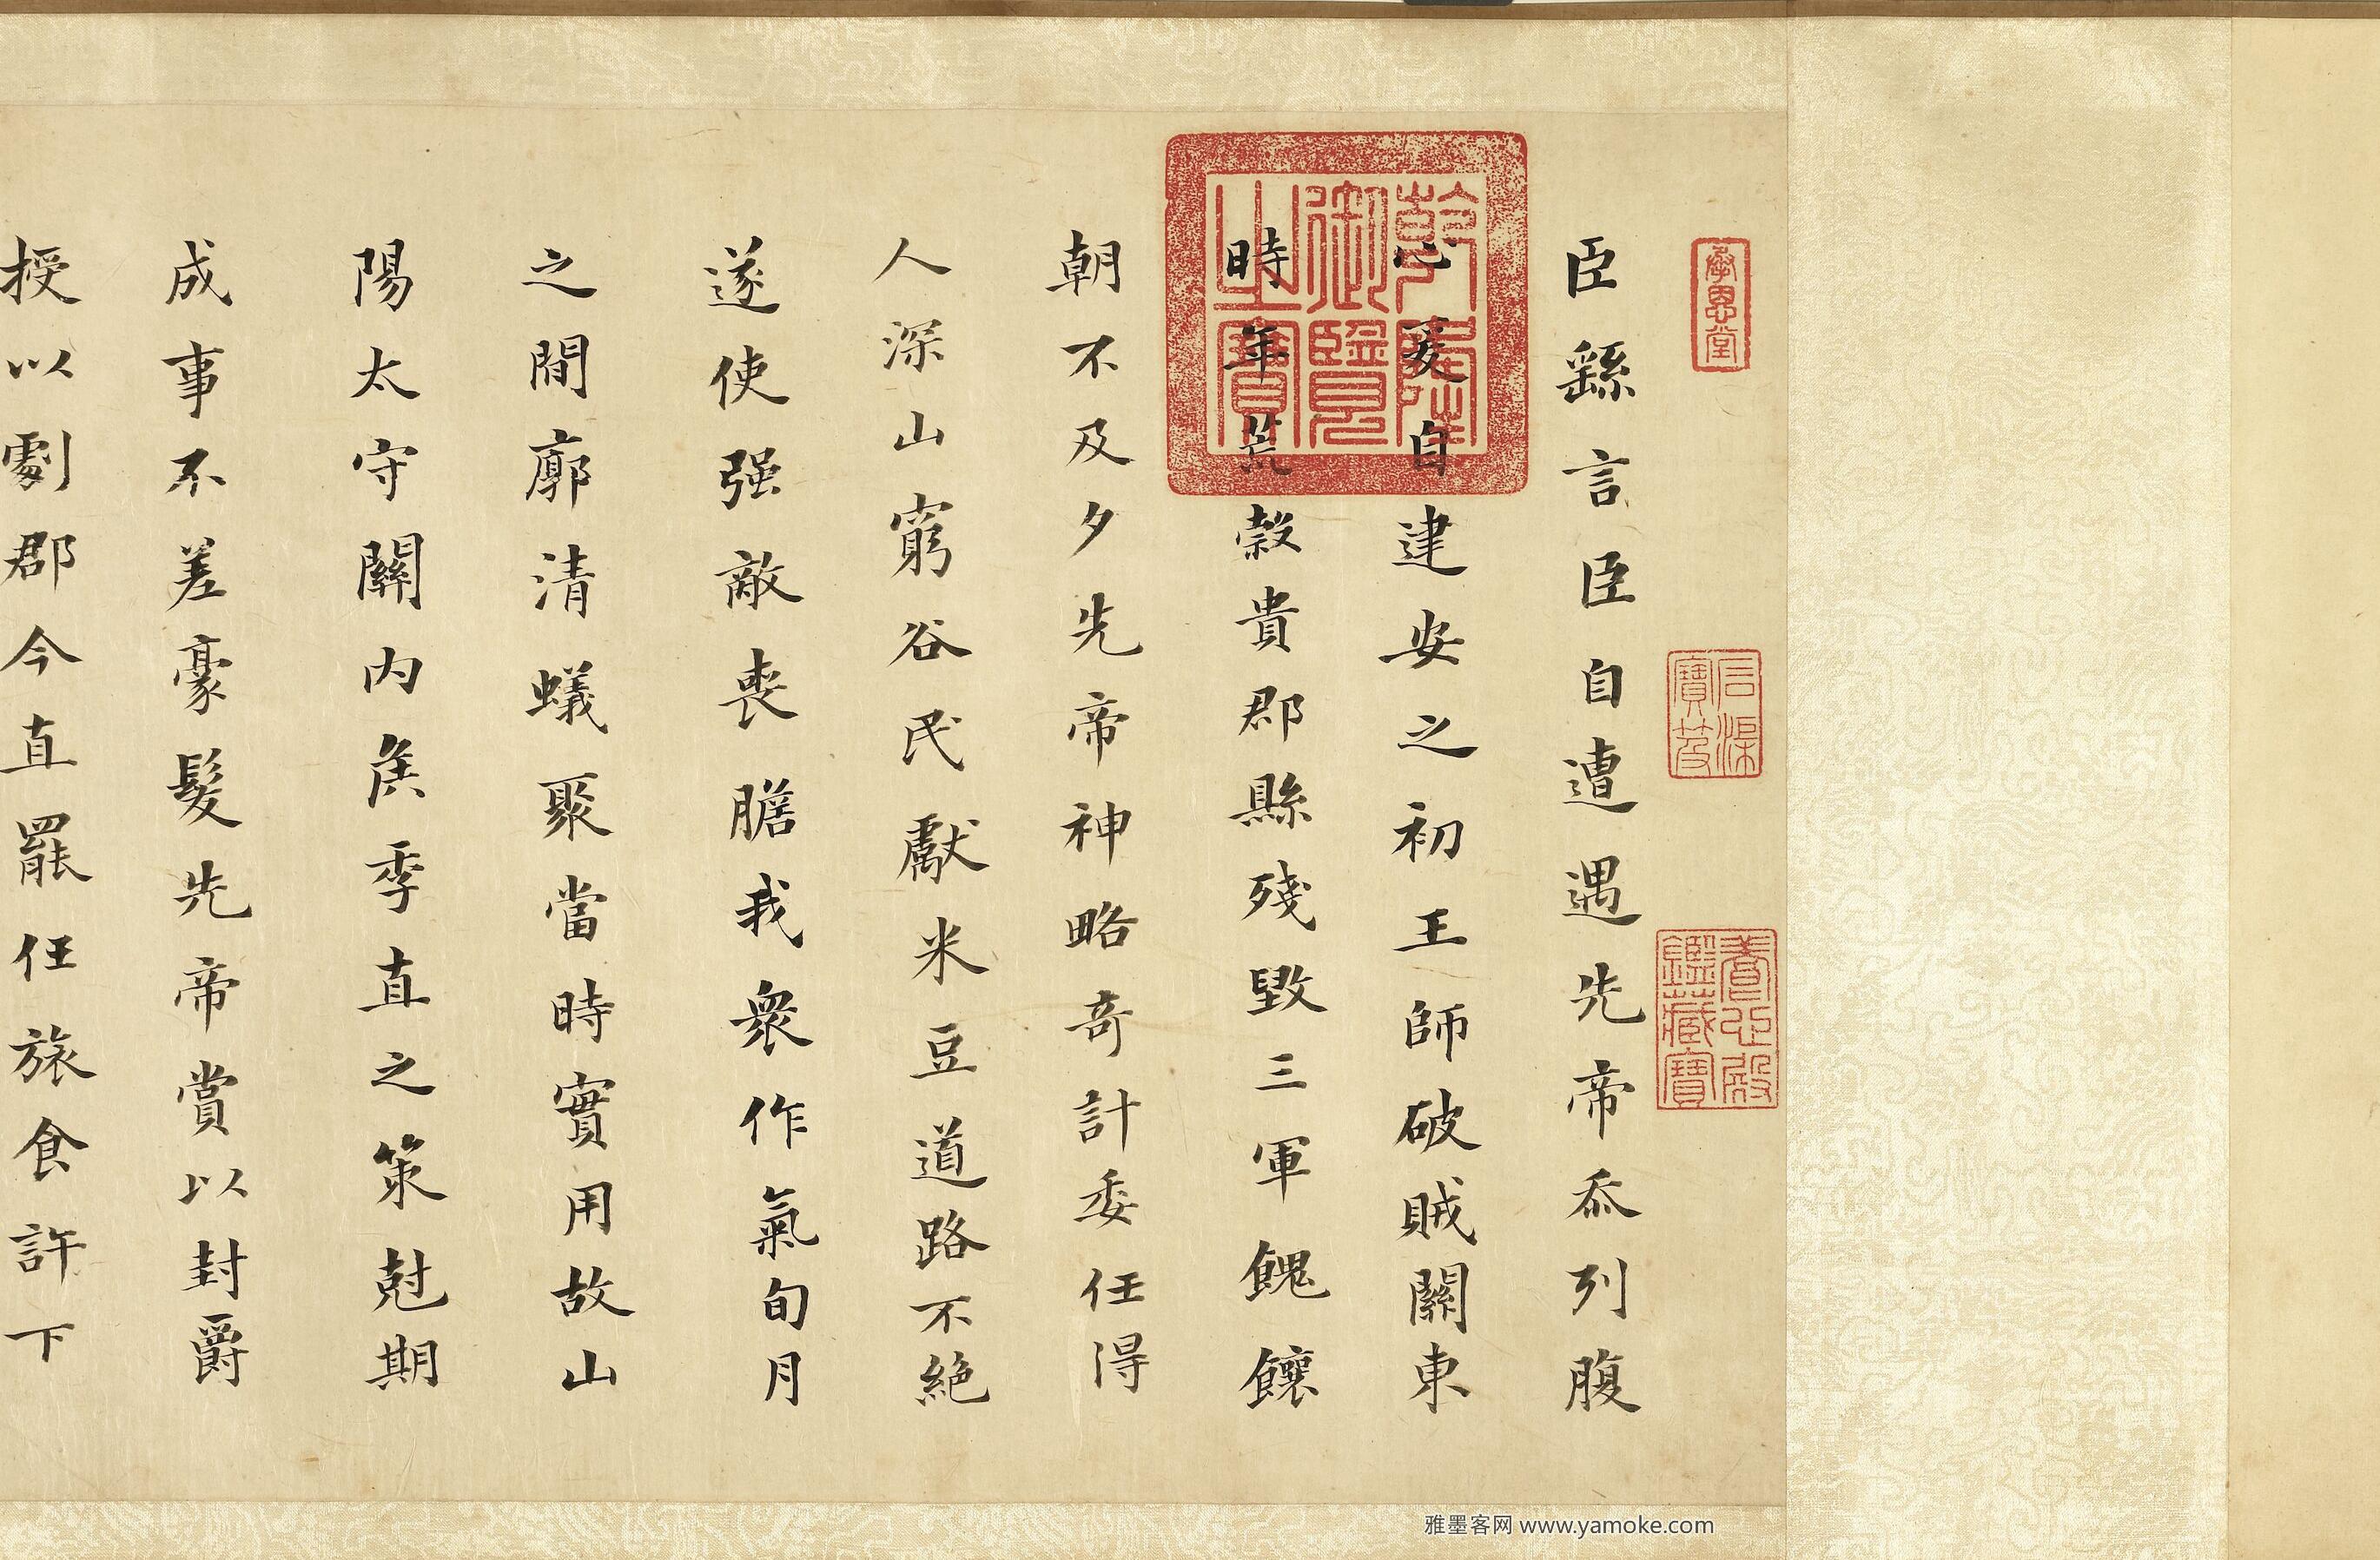 臣繇言臣自遭遇先帝忝列腹
心爰自建安之初王師破賊關東
時年荒穀貴郡縣殘毀三軍餽饟
朝不及夕先帝神略奇計委任得
人深山窮谷民獻米豆道路不絕
遂使强敵喪膽我衆作氣旬月
之間廓清蟻聚當時實用故山
陽太守關內侯季直之策尅期
成事不差豪髮先帝賞以封爵
授以劇郡今直罷任旅食許下
承恩堂
石渠寶笈
養心殿鑑藏寶
乾隆御覽之寶
雅墨客网 www.yamoke.com